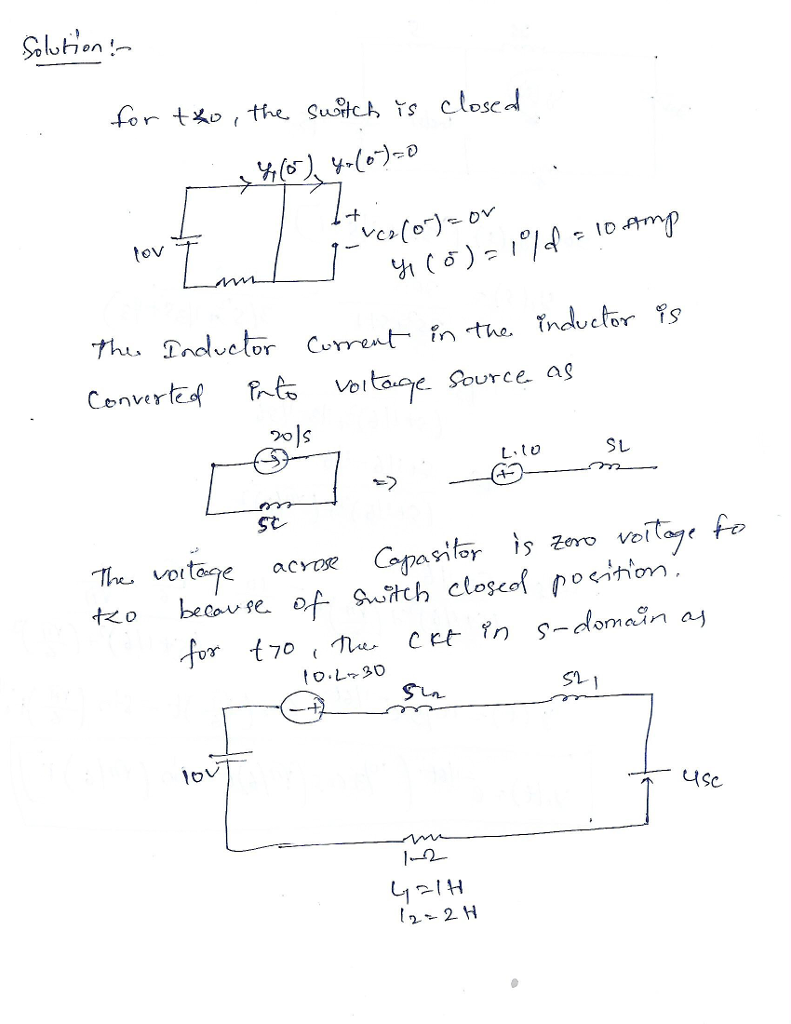 Solution :-
for t<0, the switch is closed
y₁(0⁻) y₂(0⁻)=0
+
- vc2(0⁻) = 0v
10V
y₁(0⁻) = 10/1 = 10 Amp
The Inductor Current in the inductor is
Converted into voltage source as
20/s
L.10 SL
=>
The voltage across Capasitor is zero voltage fo
t<0 because of switch closed position.
for t>0, the ckt in s-domain as
10.L=30
SL₂ SL1
- +
10V
1Ω
L1=1H
l2=2H